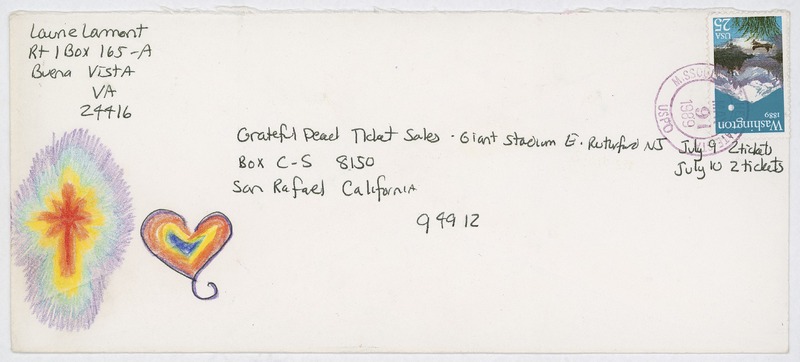 Laurie Lamont
Rt 1 Box 165-A
Buena VistA
VA
24416
Grateful Dead Ticket Sales · Giant Stadium E. Rutherford NJ July 9 2 tickets
July 10 2 tickets
Box C-S 8150
San Rafael California
94912
25
USA
Washington
1889
USPO
1989